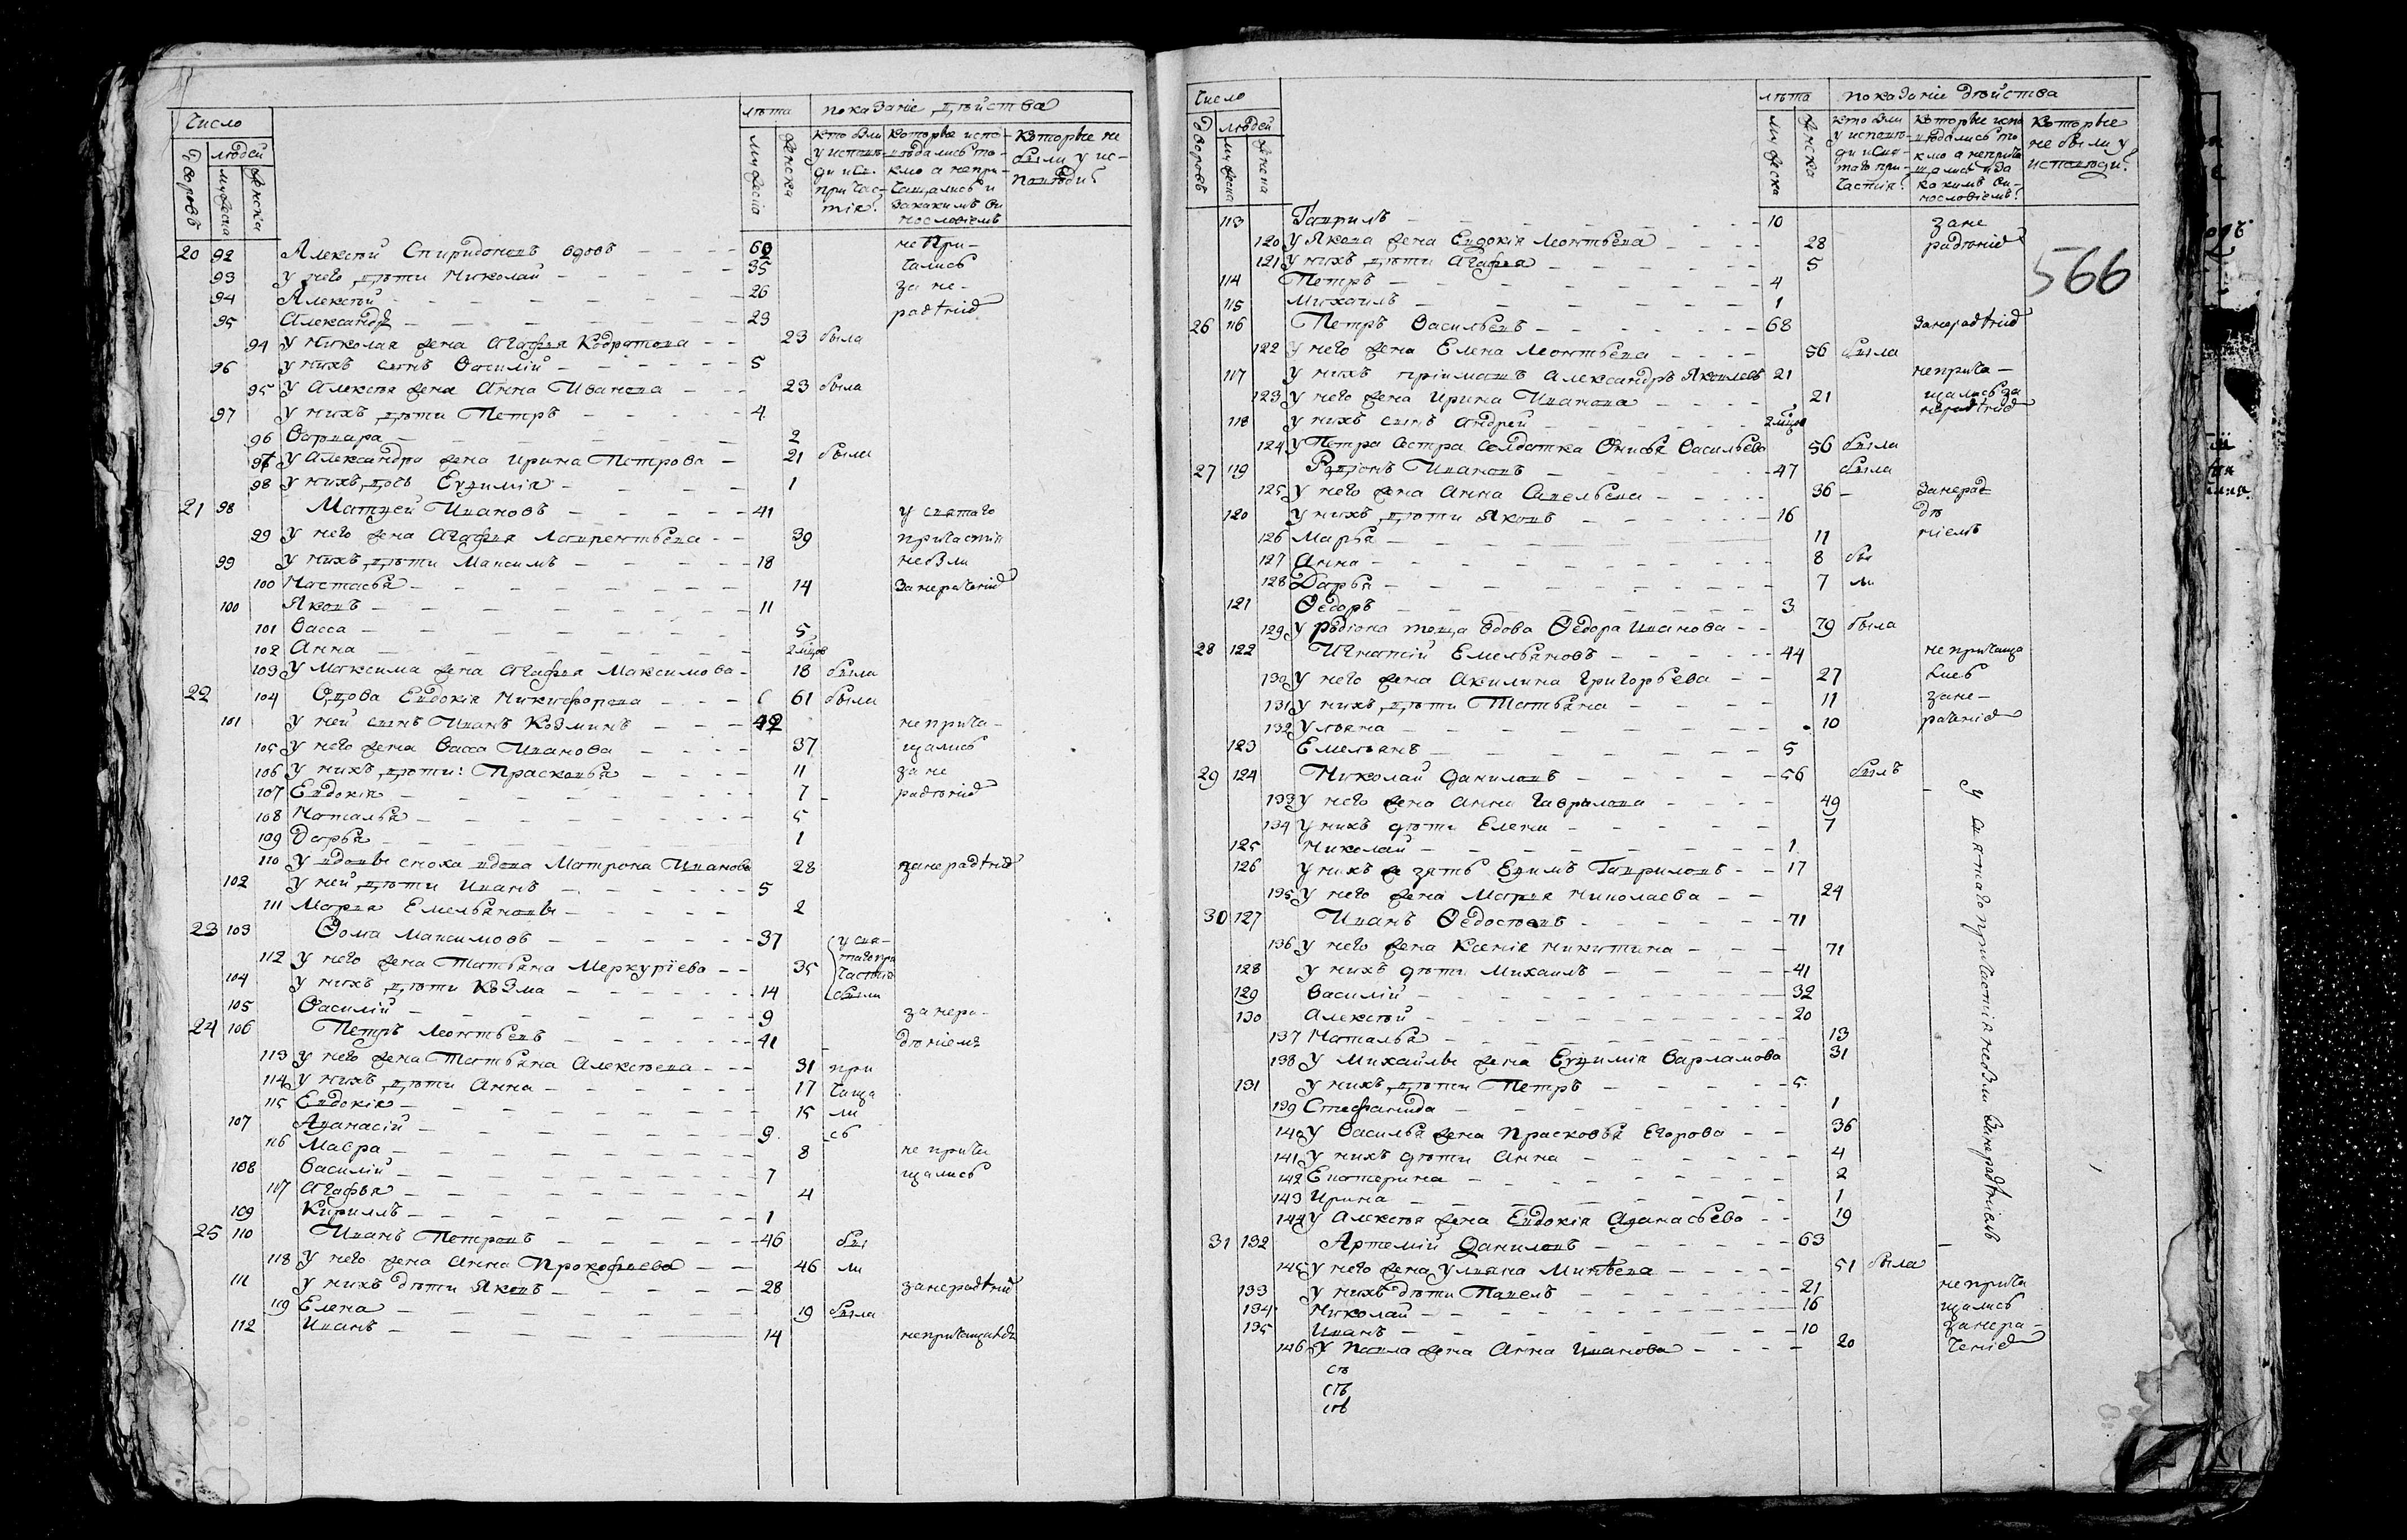 Число
лѣта показаніе дѣйства
дворовъ людей
мужеска женска
мужеска женска
кто были у исповѣди и Св. причастія?
которые исповѣдались токмо а непричащались и закакимъ винословіемъ
Которые не были у исповѣди?
20 92 Алексѣй Спиридоновъ вдовъ 60 непри-
93 у него дѣти Николай 35 чались
94 Алексѣй 26 за не-
95 Александръ 23 радѣніе
94 у Николая жена Агафья Кодратова 23 была
96 у нихъ сынъ Василій 5
95 у Алексѣя жена Анна Иванова 23 была
97 у нихъ дѣти Петръ 4
96 Варвара 2
97 у Александра жена Ирина Петрова 21 были
98 у нихъ дочь Евфимія 1
21 98 Матфей Ивановъ 41 у святаго
99 у него жена Агафья Лаврентьева 39 причастія
99 у нихъ дѣти Максимъ 18 небыли
100 Настасья 14 Занерачение
100 Яковъ 11
101 Васса 5
102 Анна 2 мѣцов
103 у Максима жена Агафья Максимова 18 была
22 104 Вдова Евдокія Никифорова 61 были
101 у ней сынъ Иванъ Козминъ 42 неприча-
105 у него жена Васса Иванова 37 щались
106 у нихъ дѣти: Прасковья 11 за не
107 Евдокія 7 радѣніе
108 Наталья 5
109 Дарья 1
110 у вдовы сноха вдова Матрона Иванова 28 занерадѣніе
102 у ней дѣти Иванъ 5
111 Марья Емельяновы 2
23 103 Ѳома Максимовъ 37 у свя-
112 у него жена Татьяна Меркуріева 35 таго при
частия
104 у нихъ дѣти Козма 14 были
105 Василій 9 занера-
24 106 Петръ Леонтьевъ 41 дѣніемъ
113 у него жена Татьяна Алексѣева 31 при
114 у нихъ дѣти Анна 17 чаща
115 Евдокія 15 ли
107 Афанасій 9 сь
116 Мавра 8 не прича
108 Василій 7 щались
117 Агафья 4
109 Кириллъ 1
25 110 Иванъ Петровъ 46 бы
118 у него жена Анна Прокофьева 46 ли
111 у нихъ дѣти Яковъ 28 занерадѣній
119 Елена 19 была
112 Иванъ 14 непричащался
Число
лѣта показаніе дѣйства
дворовъ людей
мужеска женска
мужеска женска
кто были у исповѣди и Святаго причастія?
которые исповѣдались токмо а непричащались и за какимъ винословіемъ?
Которые не были у исповѣди?
566
113 Гаврилъ 10 зане
120 у Якова жена Евдокія Леонтьева 28 радѣніе
121 у нихъ дѣти Агафья 5
114 Петръ 4
115 Михаилъ 1
26 116 Петръ Васильевъ 68 Занерадѣніе
122 у него жена Елена Леонтьева 56 была
117 у нихъ пріимашъ Александръ Яковлевъ 21 неприча-
123 у него жена Ирина Иванова 21 щались за
118 у нихъ сынъ Андрей 2 мѣцов нерадѣніе
124 у Петра Сестра Солдатка Ѳнисья Васильева 56 была
27 119 Родіонъ Ивановъ 47 была
125 у него жена Анна Савельева 36 Занерад
120 у нихъ дѣти Яковъ 16 дѣ
126 Марья 11 ніемъ
127 Анна 8 бы
128 Дарья 7 ли
121 Ѳедоръ 3
129 у родіона теща вдова Ѳедора Иванова 79 была
28 122 Игнатій Емельяновъ 44 не прича­ща
130 у него жена Акилина Григорьева 27 лись
131 у нихъ дѣти Татьяна 11 зане-
132 Ульяна 10 рачение
123 Емельянъ 5
29 124 Николай Даниловъ 56 былъ
133 у него жена Анна Гаврилова 49
134 у нихъ дѣти Елена 7
125 Николай 1
126 у нихъ же зять Ефимъ Гавриловъ 17
135 у него жена Марья Николаева 24
30 127 Иванъ Ѳедосѣевъ 71
136 у него жена Ксенія Никитина 71
128 у нихъ дѣти Михаилъ 41
129 Василій 32
130 Алексѣй 20
137 Наталья 13
138 у Михайлы жена Евфимія Варламова 31
131 у нихъ дѣти Петръ 5
139 Стефанида 1
140 у Василья жена Прасковья Егорова 36
141 у нихъ дѣти Анна 4
142 Екатерина 2
143 Ирина 1
144 у Алексѣя жена Евдокія Афанасьева 19
у святаго причастія небыли Занерадѣніемъ
31 132 Артемій Даниловъ 63
145 у него жена Ульяна Минѣева 51 была
133 у нихъ дѣти Павелъ 21 не прича
134 Николай 16 щались
135 Иванъ 10 Занера-
146 у Павла жена Анна Иванова 20 чение
съ
съ
съ